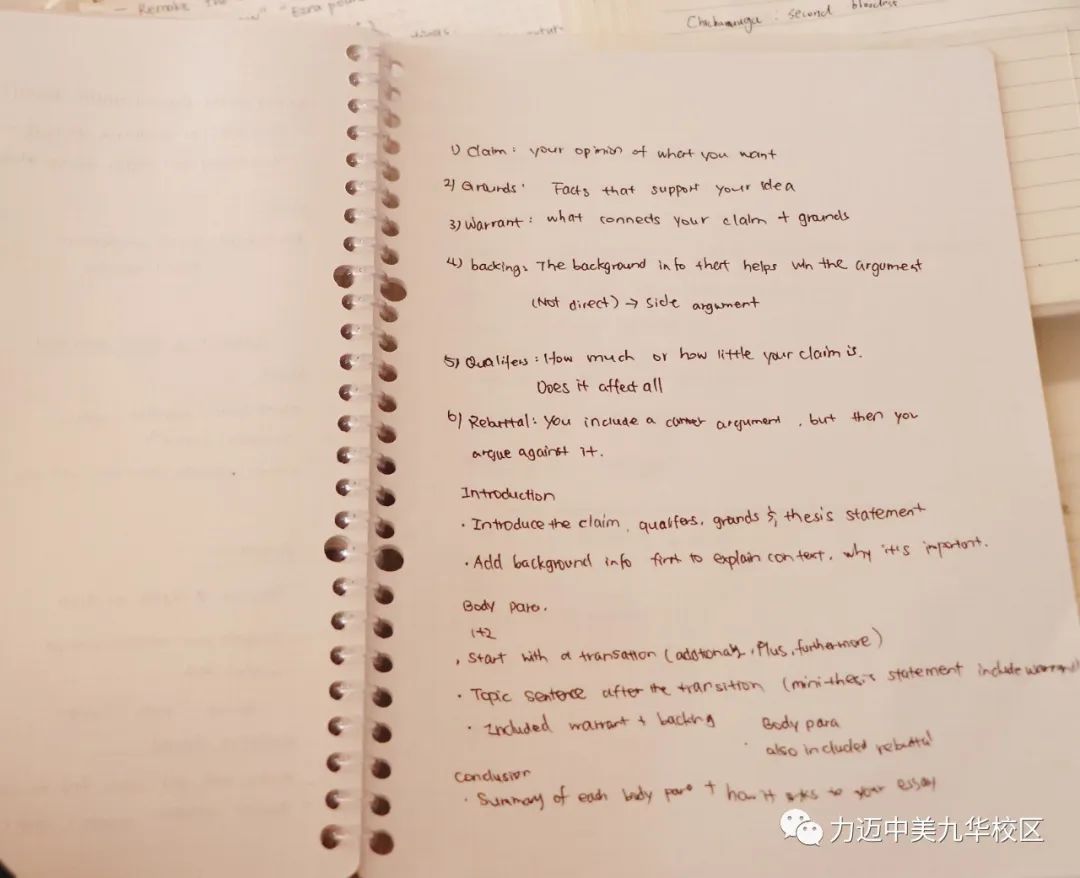 - Remake the
"Ezra pound
Chickamauga : second bloodiest
1) Claim : your opinion of what you want
2) Grounds : Facts that support your idea
3) Warrant : what connects your claim + grounds
4) backing : The background info that helps win the argument
(Not direct) → side argument
5) Qualifers : How much or how little your claim is.
Does it affect all
6) Rebuttal : You include a counter argument , but then you
argue against it.
Introduction
· Introduce the claim, qualifers, grands & thesis statement
· Add background info first to explain context, why it's important.
Body para.
1+2
· Start with a transation (additonaly, Plus, furthermore)
· Topic sentence after the transition (mini-thesis statement include warrant)
· Included warrant + backing
Body para
· also included rebuttal
Conclusion
· Summary of each body para + how it to your essay
力迈中美九华校区